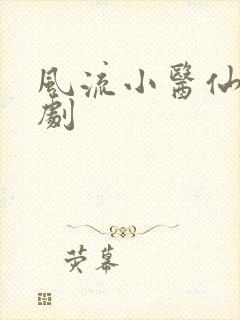 風流小醫仙
劇
荧幕